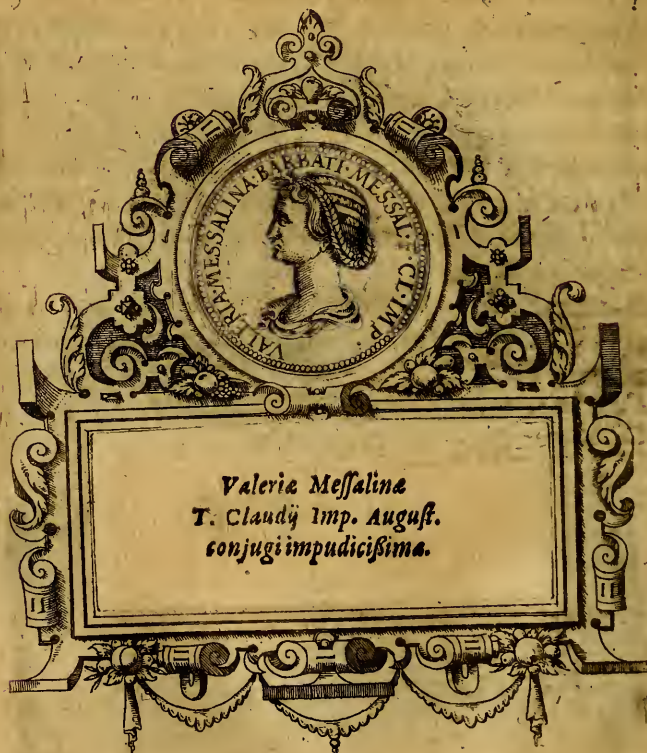 VALERIA·MESSALINA·BARBATI·MESSAL·CL·IMP·
Valeriæ Meſſalinæ
T. Claudij Imp. Auguſt.
conjugi impudicißimæ.